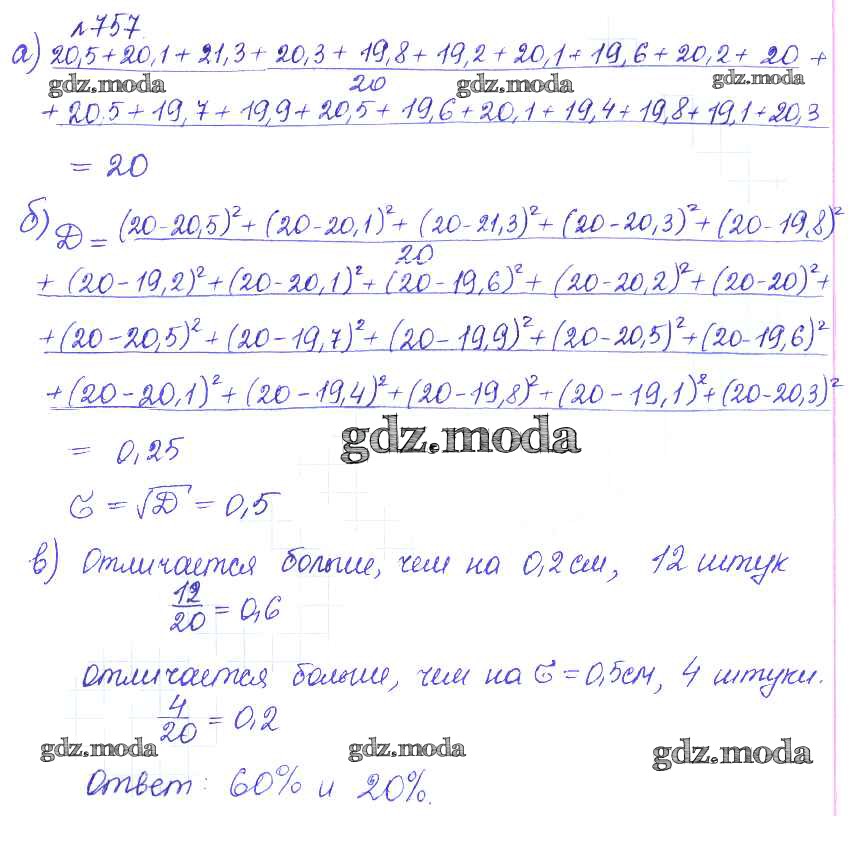 №757.
а) 20,5+20,1+21,3+20,3+19,8+19,2+20,1+19,6+20,2+20+
gdz.moda 20 gdz.moda gdz.moda
+20.5+19,7+19,9+20,5+19,6+20,1+19,4+19,8+19,1+20,3
= 20
б) D = (20-20,5)²+(20-20,1)²+(20-21,3)²+(20-20,3)²+(20-19,8)²
20
+(20-19,2)²+(20-20,1)²+(20-19,6)²+(20-20,2)²+(20-20)²+
+(20-20,5)²+(20-19,7)²+(20-19,9)²+(20-20,5)²+(20-19,6)²
+(20-20,1)²+(20-19,4)²+(20-19,8)²+(20-19,1)²+(20-20,3)²
= 0,25 gdz.moda
σ = √D = 0,5
в) Отличается больше, чем на 0,2см, 12 штук
12/20 = 0,6
Отличается больше, чем на σ = 0,5см, 4 штуки.
4/20 = 0,2
gdz.moda gdz.moda gdz.moda
Ответ: 60% и 20%.